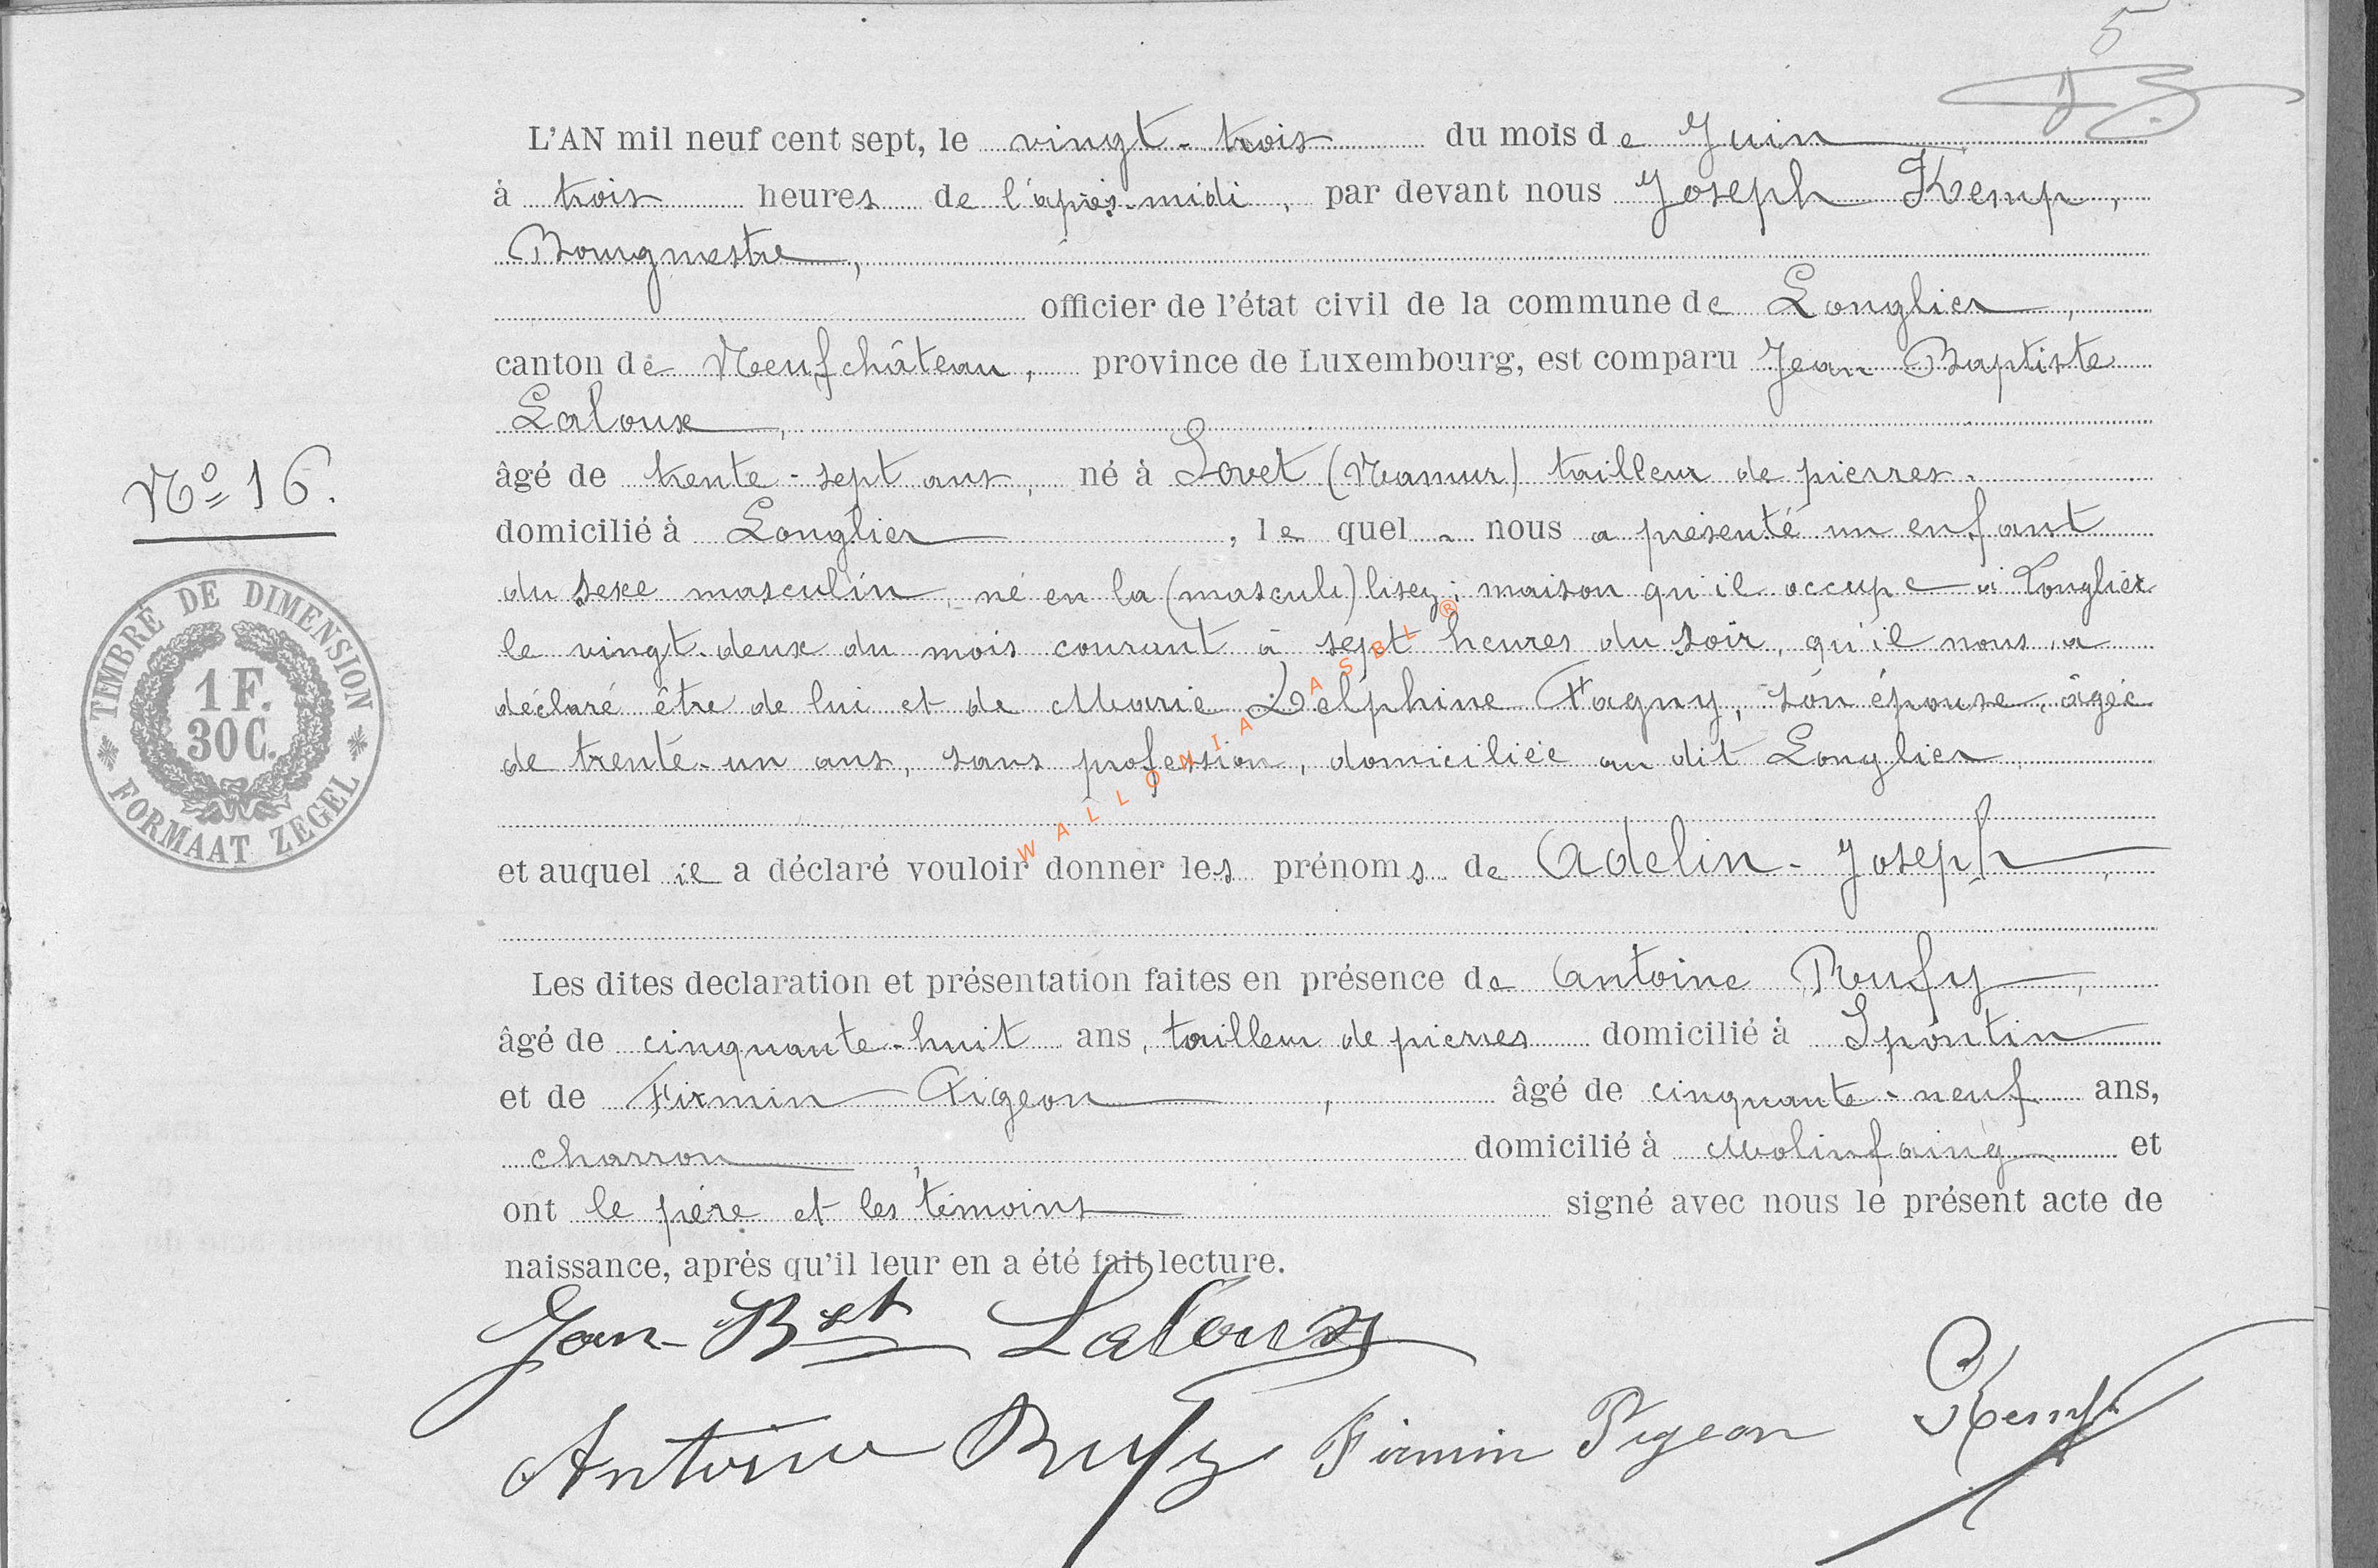 5
L'AN mil neuf cent sept, le vingt-trois du mois de Juin
à trois heures de l'après-midi, par devant nous Joseph Kemp,
Bourgmestre,
officier de l'état civil de la commune de Longlier,
canton de Neufchâteau, province de Luxembourg, est comparu Jean Baptiste
Laloux,
âgé de trente-sept ans, né à Sovet (Namur) tailleur de pierres.
Nº 16.
domicilié à Longlier, lequel nous a présenté un enfant
du sexe masculin, né en la (masculi) lisez: maison qu'il occupe à Longlier
le vingt-deux du mois courant à sept heures du soir, qu'il nous a
déclaré être de lui et de Marie Delphine Fagny, son épouse, âgée
de trente-un ans, sans profession, domiciliée au dit Longlier
TIMBRE DE DIMENSION
1 F.
30 C.
FORMAAT ZEGEL
WALLONIA ASBL ®
et auquel il a déclaré vouloir donner les prénoms de Adelin-Joseph,
Les dites declaration et présentation faites en présence de Antoine Rufy,
âgé de cinquante-huit ans, tailleur de pierres domicilié à Spontin
et de Firmin Pigeon, âgé de cinquante-neuf ans,
charron, domicilié à Molinfaing et
ont le père et les témoins signé avec nous le présent acte de
naissance, après qu'il leur en a été fait lecture.
Jean-Bst Laloux
Antoine Rufy Firmin Pigeon Kemp